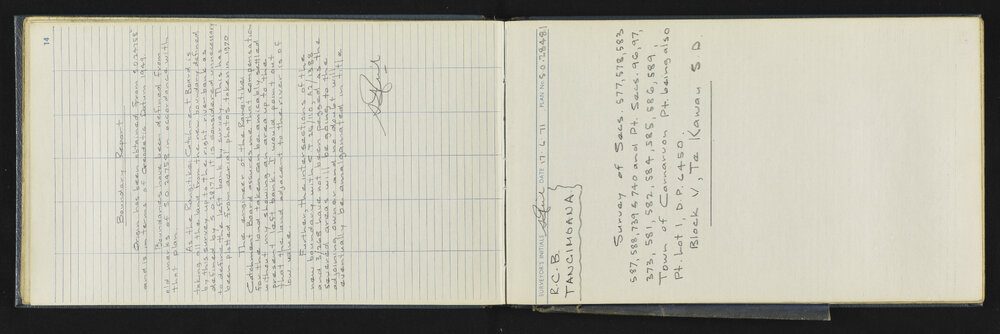 14
Boundary Report
Origin has been obtained from S.O. 24758
and is in terms of Geodetic Datum 1949.
Boundaries have been defined from
old marks of S.O. 24758 in accordance with
that plan.
As the Rangitikei Catchment Board is
taking all the land from the new boundary defined
by this survey up to the right river bank as
defined by S.O. 28171 it is considered unnecessary
to define the left bank by survey. This has
been plotted from aerial photos taken in 1970
The engineer of the Rangitikei
Catchment Board assures me that compensation
for the land taken can be amicably settled
without my showing an area up to the
present left bank. I would point out
that the land adjacent to the river is of
low value
Further, the intersections of the
new boundary with C.T.
and 3/268 have not been pegged as the
severed areas will belong to the
adjoining owner and no doubt will
eventually be amalgamated in title
SURVEYOR'S INITIALS DATE 17.6.71 PLAN No. S.O. 28481
R.C.B.
TANGIMOANA
Survey of Secs. 577, 578, 583
587, 588, 739 & 740 and Pt. Secs. 96, 97,
373, 581, 582, 584, 585, 586, 589,
Town of Carnarvon Pt. being also
Pt. Lot 1, D.P. 6450.
Block V, Te Kawau S.D.